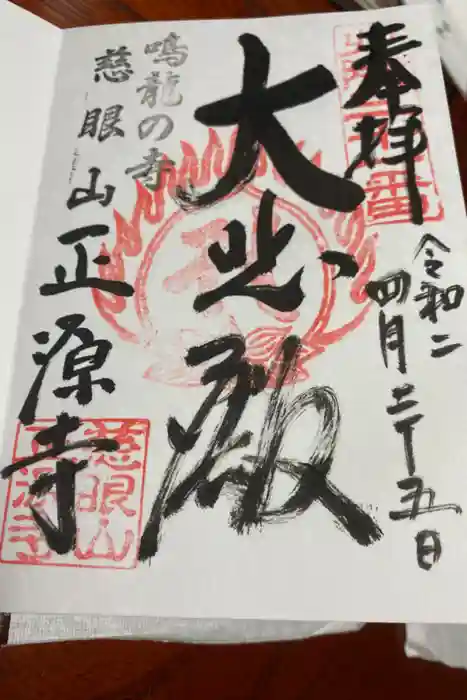 奉拝
令和二
四月二十五日
大悲殿
鳴龍の寺
慈眼山正源寺
慈眼山
正源寺